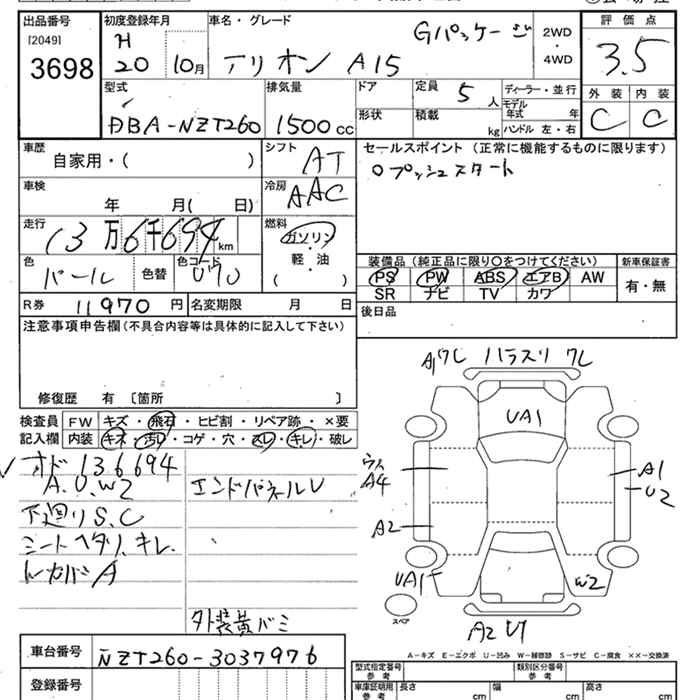 出品番号 初度登録年月 車名・グレード 評価点
[2049] H Gパッケージ 2WD
3698 20 10月 アリオン A15 4WD 3.5
型式 排気量 ドア 定員 5 人 ディーラー・並行 外装 内装
DBA-NZT260 1500cc 形状 積載 kg モデル年式 年 C C
ハンドル 左・右
車歴 自家用・( ) シフト AT セールスポイント (正常に機能するものに限ります)
車検 年 月( 日) 冷房 AAC プッシュスタート
走行 13万6千694km 燃料 ガソリン
軽・油
色 パール 色替 色コード 070 ( )
装備品(純正品に限り○をつけてください) 新車保証書
PS PW ABS エアB AW 有・無
SR ナビ TV カワ
R券 11970円 名変期限 月 日 後日品
注意事項申告欄(不具合内容等は具体的に記入して下さい)
修復歴 有 〔箇所 〕
検査員 FW キズ・飛石・ヒビ割・リペア跡・×要
記入欄 内装 キズ・汚レ・コゲ・穴・スレ・キレ・破レ
オド 136694
A.U.W2 エンドパネルU
下廻りS.C
シートヘタリ、キレ.
トレカバーA
外装黄バミ
A17C ハラスリ 7C
UA1
A4
A2
UA1
A1
U2
W2
A2 U1
スペア
A-キズ E-エクボ U-凹み W-補修跡 S-サビ C-腐食 ××-交換済
車台番号 NZT260-3037976
登録番号
型式指定番号 参考 類別区分番号 参考
車庫証明用 参考 長さ cm 幅 cm 高さ cm